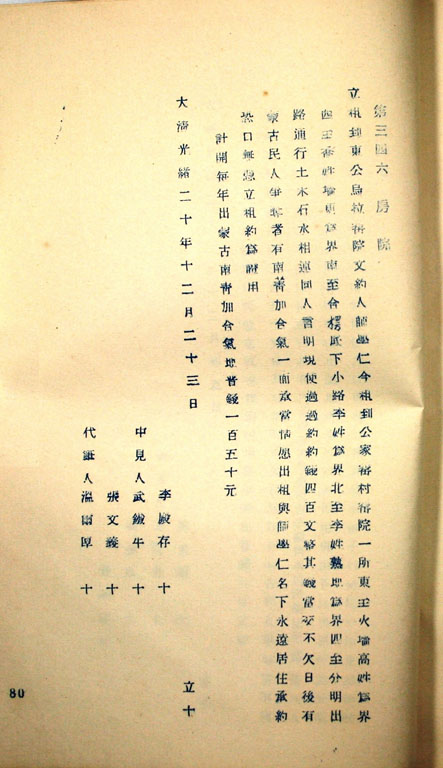 第三四六 房院
立租到東公烏拉窰院文約人師學仁今租到公家窰村窰院一所東至火墻高姓爲界
四至喬姓墻東爲界南至合楞底下小路李姓爲界北至李姓熟地爲界四至分明出
路通行土木石水相連同人言明現使過過約錢四百文整其錢當交不欠日後有
蒙古民人爭奪者有南菁加合氣一面承當情愿出租與師學仁名下永遠居住承約
恐口無憑立租約爲證用
計開每年出蒙古南菁加合氣地普錢一百五十元
大清光緒二十年十二月二十三日
立十
李殿存 十
中見人武鐵牛 十
張文義 十
代筆人溫爾厚 十
80